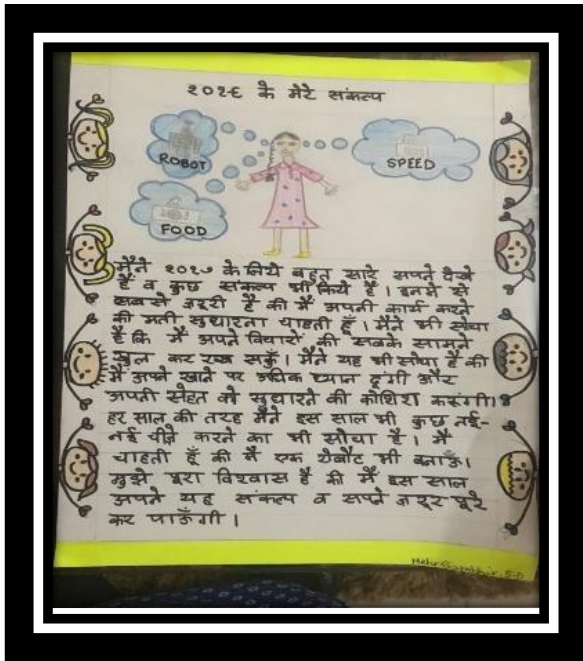 २०१८ के मेरे संकल्प
ROBOT
SPEED
FOOD
मैंने २०१७ के लिये बहुत सारे सपने देखे
हैं व कुछ संकल्प भी किये हैं। इनमे से
सबसे ज़रूरी है की मैं अपनी कार्य करने
की गती सुधारना चाहती हूँ। मैंने भी सोचा
है कि मैं अपने विचारों की सबके सामने
खुल कर रख सकूँ। मैंने यह भी सोचा है की
मैं अपने खाने पर अधिक ध्यान दूंगी और
अपनी सेहत को सुधारने की कोशिश करूंगी।
हर साल की तरह मैंने इस साल भी कुछ नई-
नई चीज़े करने का भी सोचा है। मैं
चाहती हूँ की मैं एक रोबौट भी बनाऊ।
मुझे पूरा विश्वास है की मैं इस साल
अपने यह संकल्प व सपने ज़रूर पूरे
कर पाऊँगी।
5-D